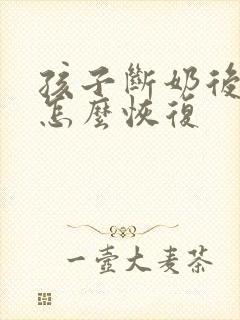 孩子斷奶後
怎麼恢復
一壺大麦茶